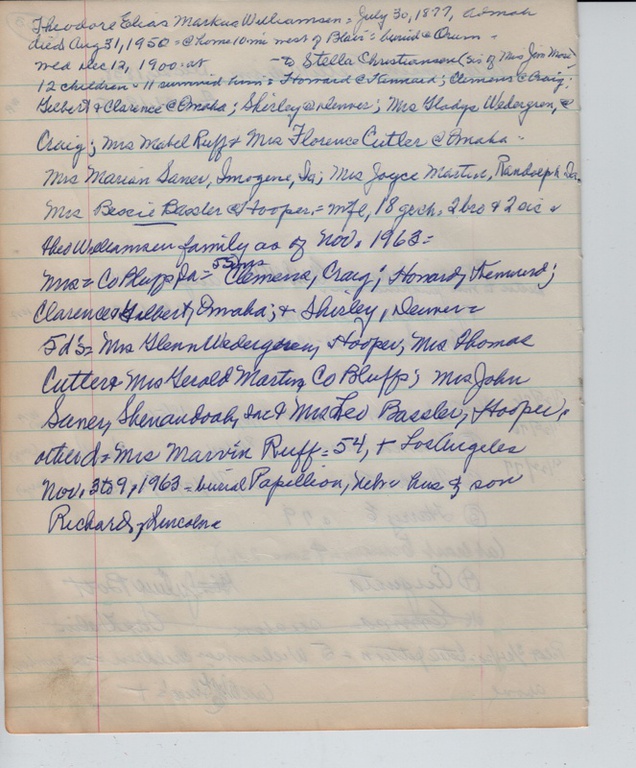 Theodore Elias Markus Williamsen = July 30, 1877,
died Aug 31, 1950 = @ home 10 mi west of Blair = buried @ Orum -
wed Dec 12, 1900 = at - to Stella Christiansen (sis of Mrs Jens
12 children = 11 survived him = Howard @ Kennard; Clemens @ Craig;
Gilbert & Clarence @ Omaha; Shirley @ Denver; Mrs Gladys Wedergren, @
Craig; Mrs Mabel Ruff & Mrs Florence Cutler @ Omaha =
Mrs Marian Saner, Imogene, Ia; Mrs Joyce Martin, Randolph Ia.
Mrs Bessie Bassler @ Hooper, = 18 grch. 2 bro & 2 sis
Theo Williamsen family as of Nov. 1963 =
Mrs = Co Bluffs Ia = 5 sons Clemens, Craig; Howard, Kennard;
Clarence & Gilbert, Omaha; & Shirley, Denver =
5 d's = Mrs Glenn Wedergren, Hooper; Mrs Thomas
Cutler & Mrs Gerald Martin, Co Bluffs; Mrs John
Saner, Shenandoah, & Mrs Leo Bassler, Hooper,
other d = Mrs Marvin Ruff = 54, + Los Angeles
Nov. 3 to 9, 1963 = burial Papillion, Nebr = hus & son
Richard, Lincoln =